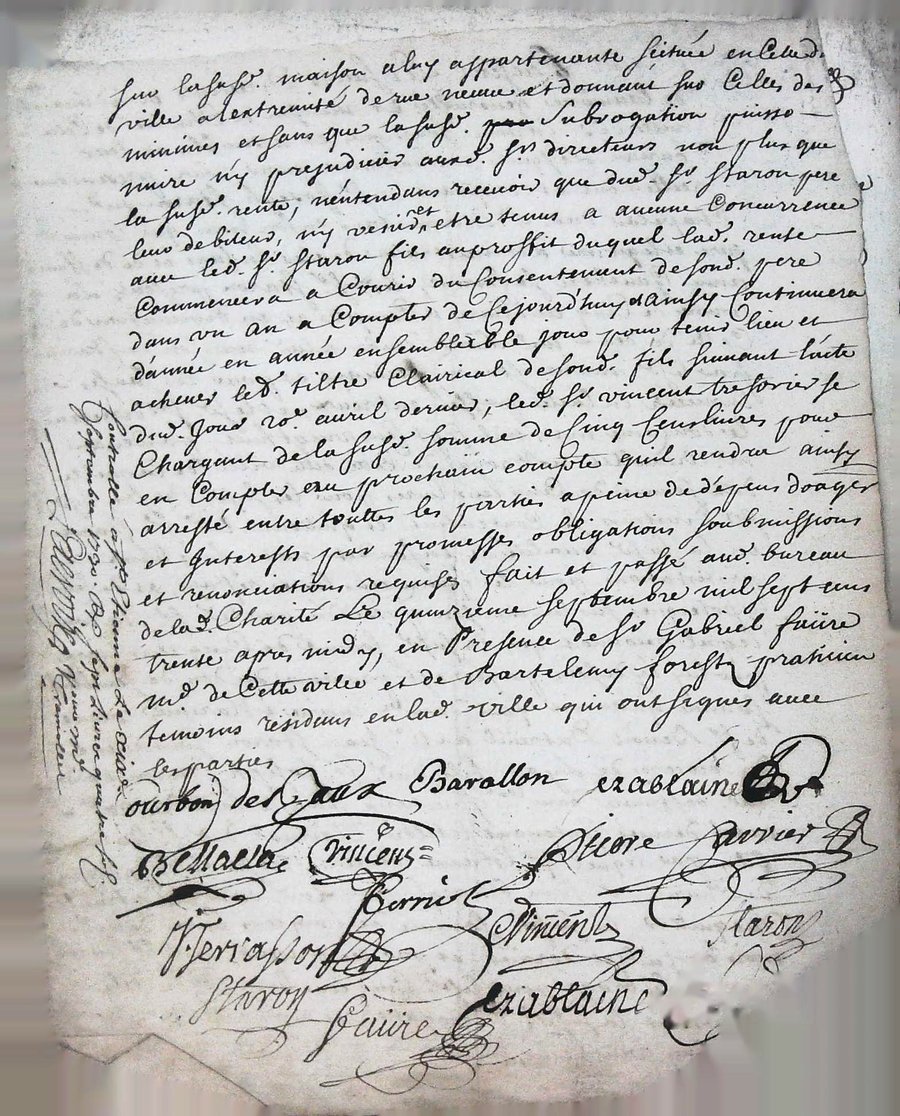 sur la susd. maison a luy appartenante scituée en Cette d.
ville a lextremité de rue neuve et donnant sur Celles des
minimes et sans que la susd. Subrogation puisse
nuire ny prejudicier ausd. srs directeurs non plus que
la susd. rente, n'entendans recevoir que dud. sr. staron pere
leur debiteur, ny venir et etre tenus a aucune Concurrence
avec led. sr. staron fils au proffit duquel lad. rente
Commencera a Courir du Consentement de sond. pere
dans un an a Compter de Cejourd'huy et ainsy Continuera
d'année en année en semblable jour pour tenir lieu et
achever led. tiltre Clairical de sond. fils suivant l'acte
dud. Jour 20e. avril dernier, led. sr. vincent tresorier se
Chargant de la susd. somme de Cinq Cens livres pour
en Compter au prochain compte quil rendra ainsy
arresté entre touttes les parties a peine de depens domages
et Interests par promesses obligations soubmissions
et renonciations requises fait et passé aud. bureau
de lad. Charité Le quinzieme septembre mil sept cens
trente apres midy, en Presence de sr Gabriel faure
md. de Cette ville et de Bartelemy forest praticien
temoins residans en lad. ville qui ont signés avec
les parties
ourbon des Barallon ezablaine
Vincens
Staron
Vincent
Staron
faure ezablaine
Controllé a st Etienne Le
septembre 1730 Rs sept Livres quatre s.